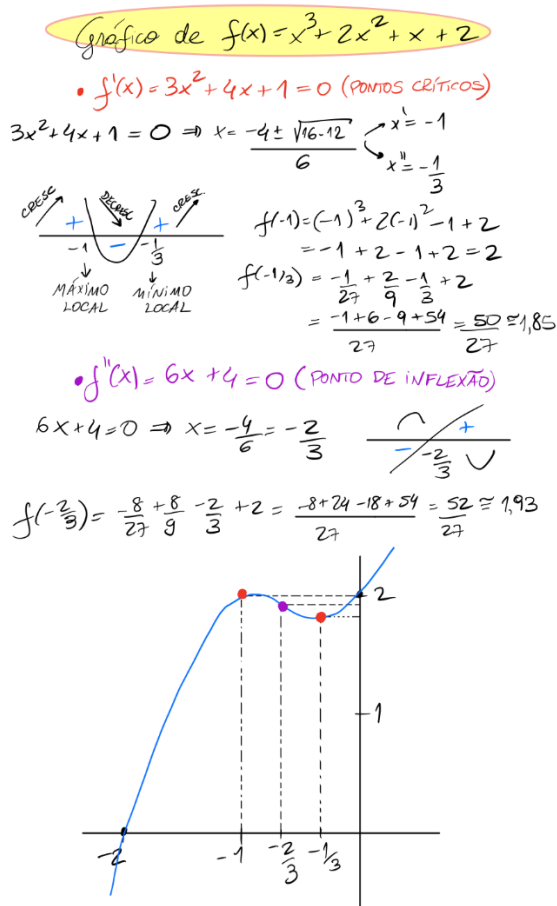 Gráfico de f(x) = x³ + 2x² + x + 2
• f'(x) = 3x² + 4x + 1 = 0 (PONTOS CRÍTICOS)
3x² + 4x + 1 = 0 ⇒ x = (-4 ± √(16-12))/6
x' = -1
x'' = -1/3
CRESC DECRESC CRESC
+ - +
-1 -1/3
MÁXIMO LOCAL
MÍNIMO LOCAL
f(-1) = (-1)³ + 2(-1)² - 1 + 2
= -1 + 2 - 1 + 2 = 2
f(-1/3) = -1/27 + 2/9 - 1/3 + 2
= (-1 + 6 - 9 + 54)/27 = 50/27 ≅ 1,85
• f''(x) = 6x + 4 = 0 (PONTO DE INFLEXÃO)
6x + 4 = 0 ⇒ x = -4/6 = -2/3
- +
-2/3
f(-2/3) = -8/27 + 8/9 - 2/3 + 2 = (-8 + 24 - 18 + 54)/27 = 52/27 ≅ 1,93
2
1
-2 -1 -2/3 -1/3